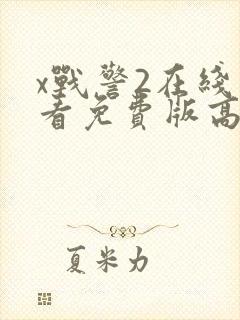 x戰警2在綫
看免費版高
夏米力